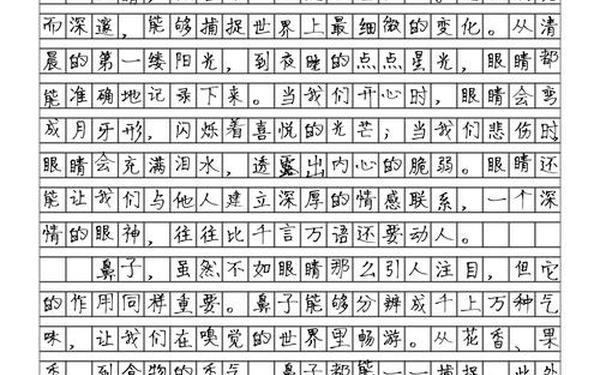 而深邃，能够捕捉世界上最细微的变化。从清
晨的第一缕阳光，到夜晚的点点星光，眼睛都
能准确地记录下来。当我们开心时，眼睛会弯
成月牙形，闪烁着喜悦的光芒；当我们悲伤时，
眼睛会充满泪水，透露出内心的脆弱。眼睛还
能让我们与他人建立深厚的情感联系，一个深
情的眼神，往往比千言万语还要动人。
鼻子，虽然不如眼睛那么引人注目，但它
的作用同样重要。鼻子能够分辨成千上万种气
味，让我们在嗅觉的世界里畅游。从花香、果
香，到食物的香气，鼻子都能一一捕捉。此外